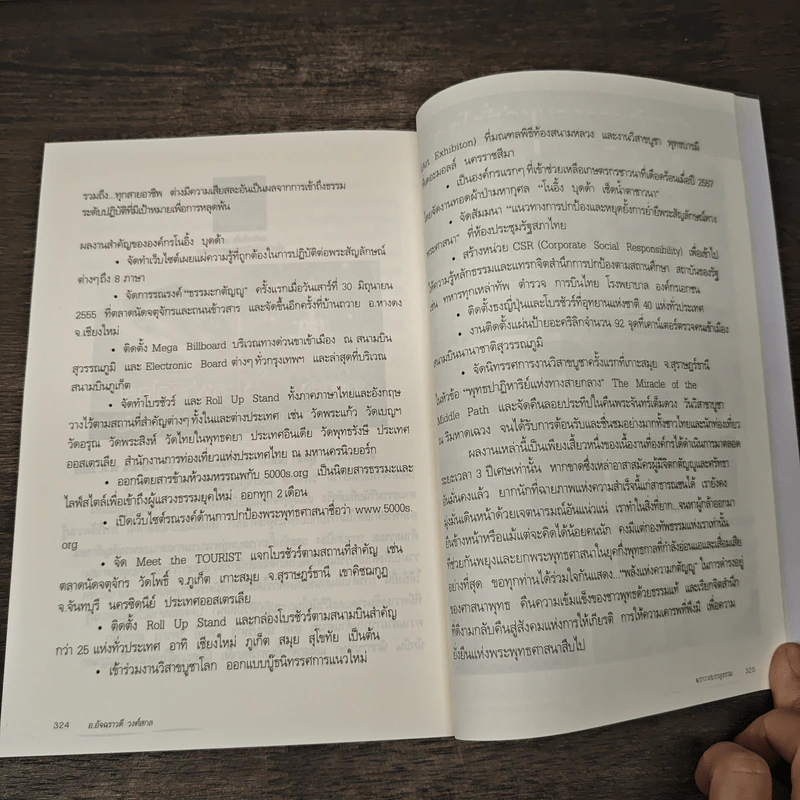 รวมถึง...ทุกสายอาชีพ ต่างมีความเสียสละอันเป็นผลจากการเข้าถึงธรรม
ระดับปฏิบัติที่มีเป้าหมายเพื่อการหลุดพ้น
ผลงานสำคัญขององค์กรโนอิ้ง บุดด้า
• จัดทำเว็บไซต์เผยแผ่ความรู้ที่ถูกต้องในการปฏิบัติต่อพระสัญลักษณ์
ต่างๆถึง 8 ภาษา
• จัดการรณรงค์ "ธรรมะกตัญญู" ครั้งแรกเมื่อวันเสาร์ที่ 30 มิถุนายน
2555 ที่ตลาดนัดจตุจักรและถนนข้าวสาร และจัดขึ้นอีกครั้งที่บ้านถวาย อ.หางดง
จ.เชียงใหม่
• ติดตั้ง Mega Billboard บริเวณทางด่วนขาเข้าเมือง ณ สนามบิน
สุวรรณภูมิ และ Electronic Board ต่างๆ ทั่วกรุงเทพฯ และล่าสุดที่บริเวณ
สนามบินภูเก็ต
• จัดทำโบรชัวร์ และ Roll Up Stand ทั้งภาคภาษาไทยและอังกฤษ
วางไว้ตามสถานที่สำคัญต่างๆ ทั้งในและต่างประเทศ เช่น วัดพระแก้ว วัดเบญฯ
วัดอรุณ วัดพระสิงห์ วัดไทยในพุทธคยา ประเทศอินเดีย วัดพุทธรังษี ประเทศ
ออสเตรเลีย สำนักงานการท่องเที่ยวแห่งประเทศไทย ณ มหานครนิวยอร์ก
• ออกนิตยสารข้ามห้วงมหรรณพกับ 5000s.org เป็นนิตยสารธรรมะและ
ไลฟ์สไตล์เพื่อเข้าถึงผู้แสวงธรรมยุคใหม่ ออกทุก 2 เดือน
• เปิดเว็บไซต์รณรงค์ด้านการปกป้องพระพุทธศาสนาชื่อว่า www.5000s.
org
• จัด Meet the TOURIST แจกโบรชัวร์ตามสถานที่สำคัญ เช่น
ตลาดนัดจตุจักร วัดโพธิ์ จ.ภูเก็ต เกาะสมุย จ.สุราษฎร์ธานี เขาคิชฌกูฏ
จ.จันทบุรี นครซิดนีย์ ประเทศออสเตรเลีย
• ติดตั้ง Roll Up Stand และกล่องโบรชัวร์ตามสนามบินสำคัญ
กว่า 25 แห่งทั่วประเทศ อาทิ เชียงใหม่ ภูเก็ต สมุย สุโขทัย เป็นต้น
• เข้าร่วมงานวิสาขบูชาโลก ออกแบบบู๊ธนิทรรศการแนวใหม่
324 อ.อัจฉราวดี วงศ์สกล
(Art Exhibiton) ที่มณฑลพิธีท้องสนามหลวง และงานวิสาขบูชา พุทธบารมี
ที่เดอะมอลล์ นครราชสีมา
• เป็นองค์กรแรกๆ ที่เข้าช่วยเหลือเกษตรกรชาวนาที่เดือดร้อนเมื่อปี 2557
โดยจัดงานทอดผ้าป่ามหากุศล "โนอิ้ง บุดด้า เช็ดน้ำตาชาวนา"
• จัดสัมมนา "แนวทางการปกป้องและหยุดยั้งการย่ำยีพระสัญลักษณ์ทาง
พระศาสนา" ที่ห้องประชุมรัฐสภาไทย
• สร้างหน่วย CSR (Corporate Social Responsibility) เพื่อเข้าไป
ให้ความรู้หลักธรรมและแทรกจิตสำนึกการปกป้องตามสถานศึกษา สถาบันของรัฐ
เช่น ทหารทุกเหล่าทัพ ตำรวจ การบินไทย โรงพยาบาล องค์กรเอกชน
• ติดตั้งธงญี่ปุ่นและโบรชัวร์ที่อุทยานแห่งชาติ 40 แห่งทั่วประเทศ
• งานติดตั้งแผ่นป้ายอะคริลิกจำนวน 92 จุดที่เคาน์เตอร์ตรวจคนเข้าเมือง
สนามบินนานาชาติสุวรรณภูมิ
• จัดนิทรรศการงานวิสาขบูชาครั้งแรกที่เกาะสมุย จ.สุราษฎร์ธานี
ในหัวข้อ "พุทธปาฏิหาริย์แห่งทางสายกลาง" The Miracle of the
Middle Path และจัดคืนลอยประทีปในคืนพระจันทร์เต็มดวง วันวิสาขบูชา
ณ ริมหาดเฉวง จนได้รับการต้อนรับและชื่นชมอย่างมากทั้งชาวไทยและนักท่องเที่ยว
ผลงานเหล่านี้เป็นเพียงเสี้ยวหนึ่งของเนื้องานที่องค์กรได้ดำเนินการมาตลอด
ระยะเวลา 3 ปีเศษเท่านั้น หากขาดซึ่งเหล่าอาสาสมัครผู้มีจิตกตัญญูและศรัทธา
อันมั่นคงแล้ว ยากนักที่ฉายภาพแห่งความสำเร็จนี้แก่สาธารณชนได้ เรายังคง
มุ่งมั่นเดินหน้าด้วยเจตนารมณ์อันแน่วแน่ เราทำในสิ่งที่ยาก...จนหาผู้กล้าออกมา
ยืนข้างหน้าหรือแม้แต่จะคิดได้น้อยคนนัก คงมีแต่กองทัพธรรมแห่งเราเท่านั้น
ที่ช่วยกันพยุงและยกพระพุทธศาสนาในยุคกึ่งพุทธกาลที่กำลังอ่อนแอและเสื่อมเสีย
อย่างที่สุด ขอทุกท่านได้ร่วมใจกันแสดง..."พลังแห่งความกตัญญู" ในการดำรงอยู่
ของศาสนาพุทธ คืนความเข้มแข็งของชาวพุทธด้วยธรรมแท้ และเรียกจิตสำนึก
ที่ดีงามกลับคืนสู่สังคมแห่งการให้เกียรติ การให้ความเคารพที่พึงมี เพื่อความ
ยั่งยืนแห่งพระพุทธศาสนาสืบไป
ฆราวาสบรรลุธรรม 325